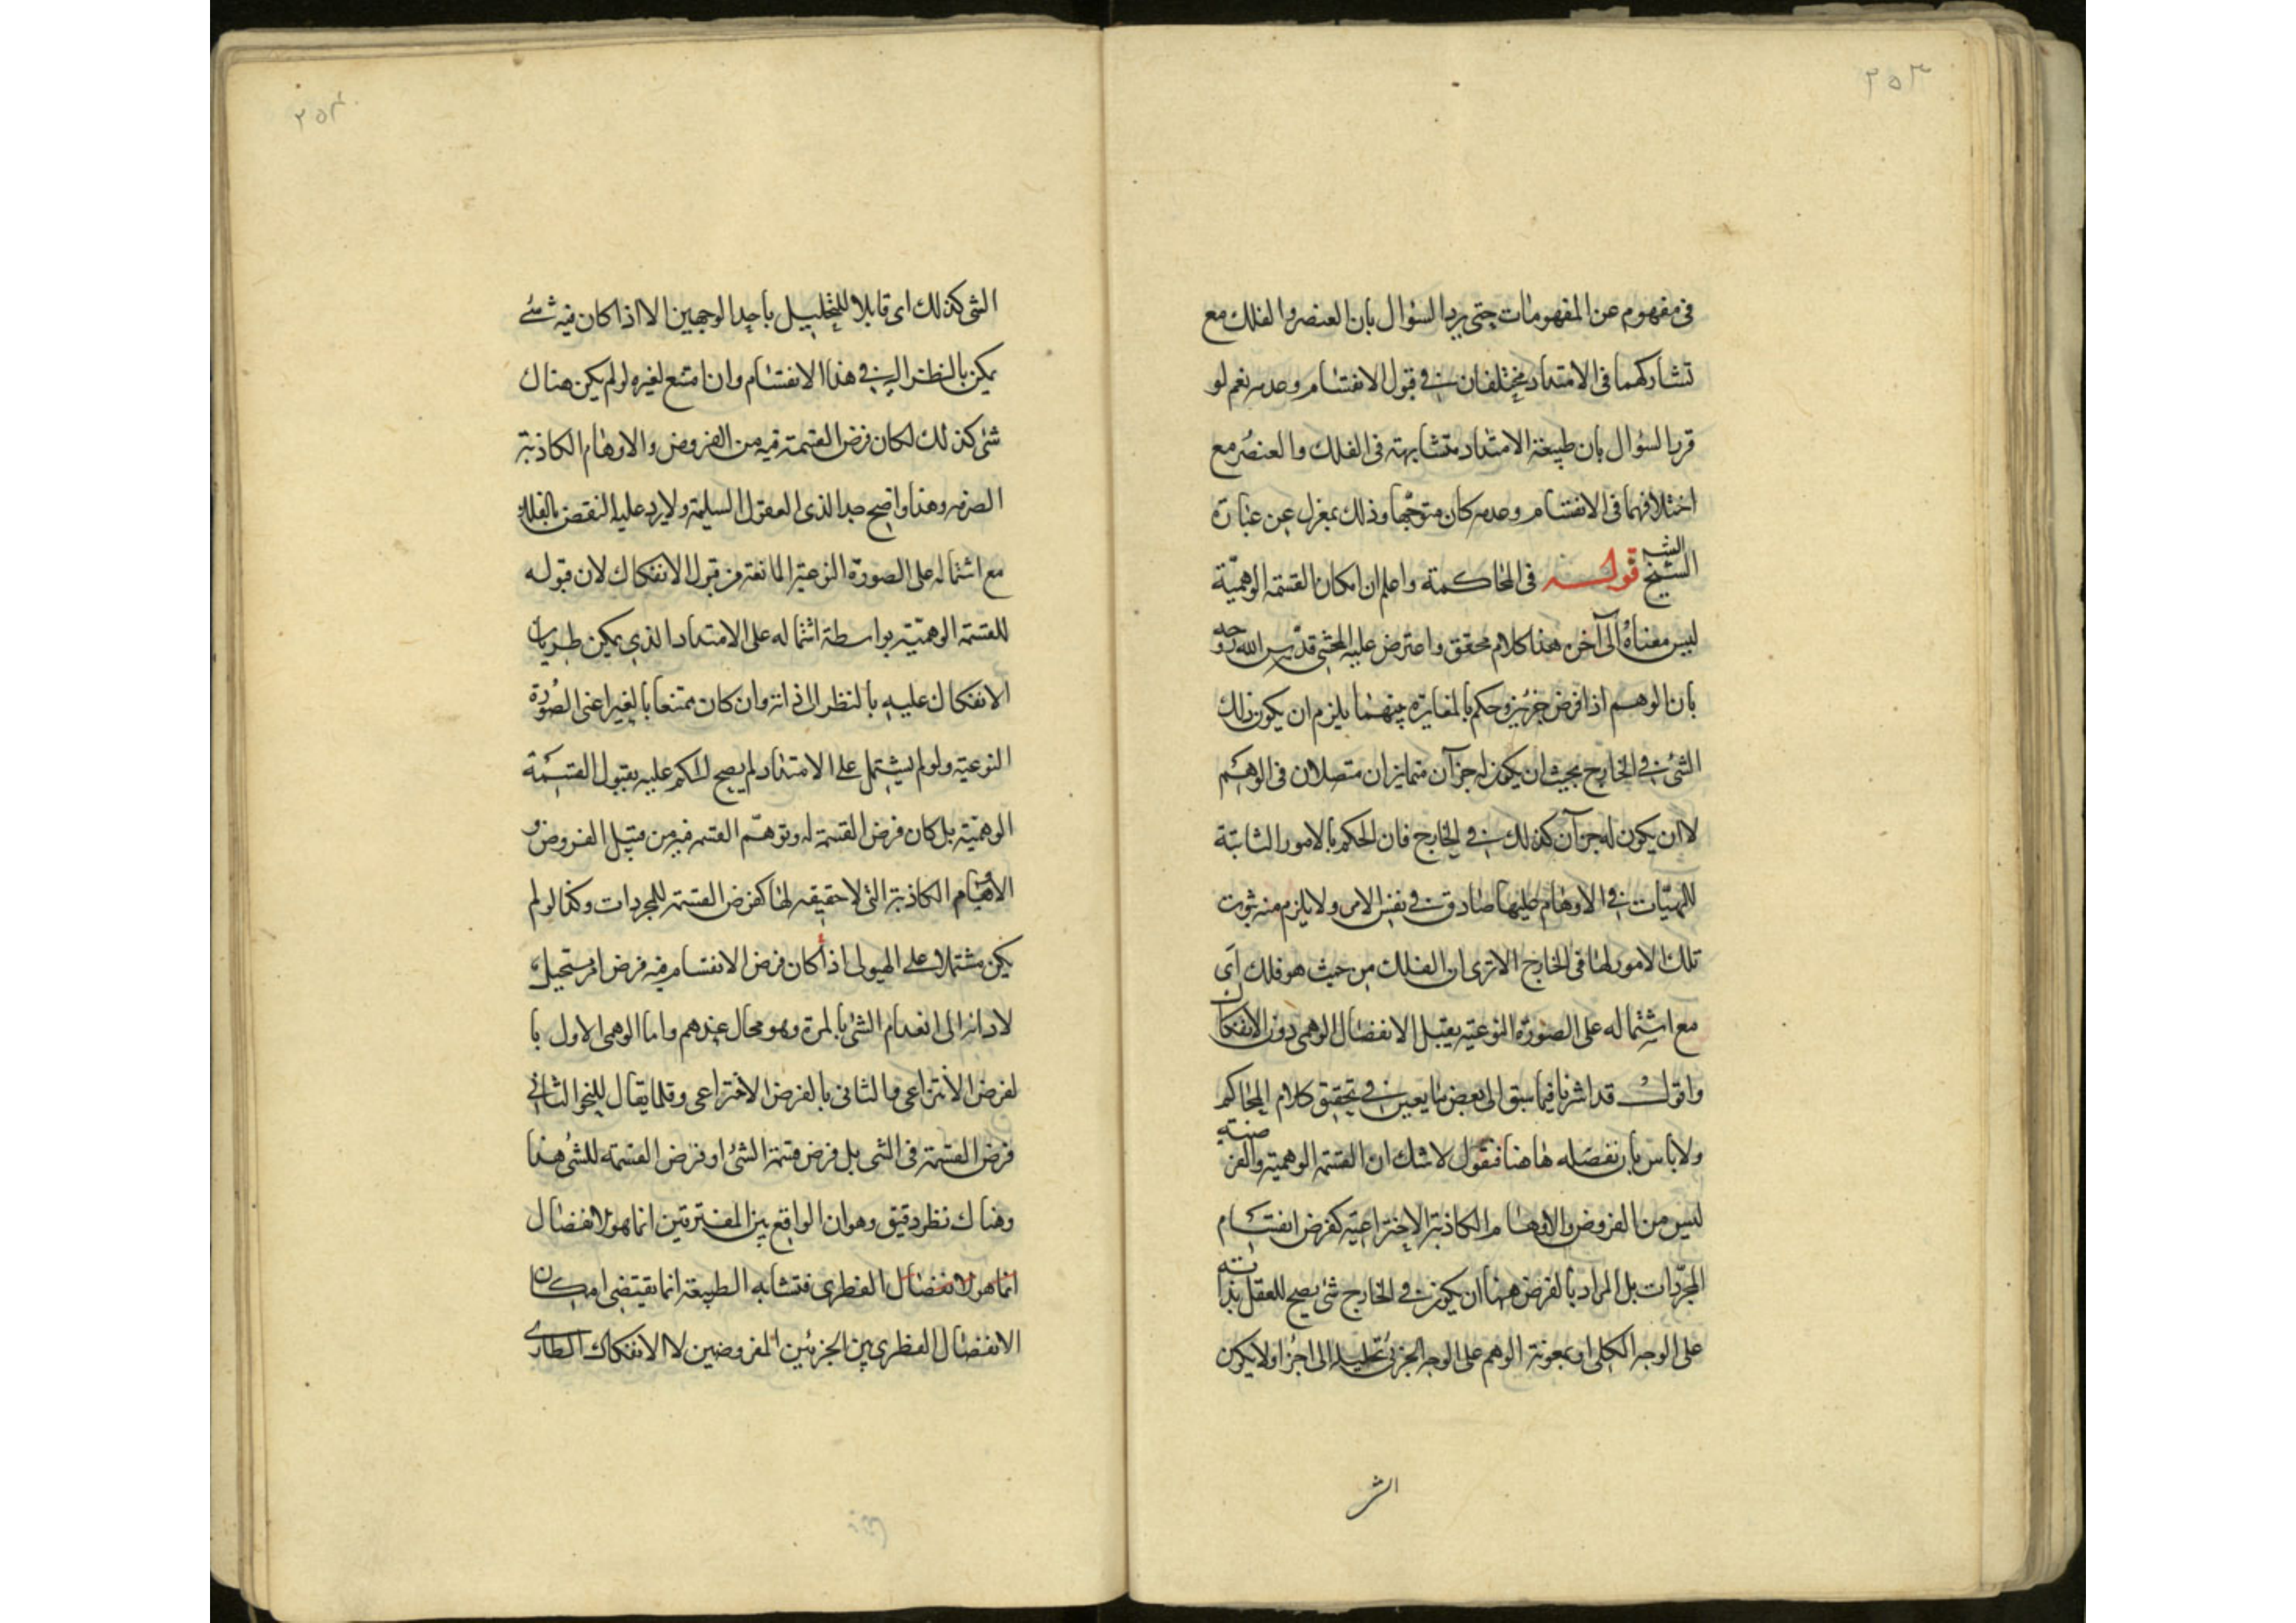 ٢٥٣
في مفهوم من المفهومات حتى يرد السؤال بان العنصر والفلك مع
تشاركهما في الامتداد مختلفان في قبول الانقسام وعدمه نعم لو
قرر السؤال بان طبيعة الامتداد متشابهته في الفلك والعنصر مع
اختلافهما في الانقسام وعدمه كان متوجها وذلك بمعزل عن عبارة
الشيخ قوله في المحاكمة واعلم ان امكان القسمة الوهمية
ليس معناه الى آخره هذا كلام محقق واعترض عليه المحشي قدس الله روحه
بان الوهم اذا فرض جزئين وحكم بالمغايرة بينهما يلزم ان يكون ذلك
الشئ في الخارج بحيث ان يكون له جزآن متمايزان متصلان في الوهم
لا ان يكون له جزآن كذلك في الخارج فان الحكم بالامور الثابتة
للهيّات في الاوهام عليها صادق في نفس الامر ولا يلزم منه ثبوت
تلك الامور لها في الخارج الا ترى ان الفلك من حيث هو فلك اى
مع اشتماله على الصورة النوعية يقبل الانفصال الوهمي دون الانفكاك
واقول قد اشرنا فيما سبق الى بعض ما يعين في تحقيق كلام المحاكم
ولا باس بان نفصله هاهنا فنقول لا شك ان القسمة الوهمية والفرضية
ليس من الفروض والاوهام الكاذبة الاختراعية كفرض انقسام
المجردات بل المراد بالفرض ههنا ان يكون في الخارج شئ يصح للعقل بذاته
على الوجه الكلى او بمعونة الوهم على الوجه الجزئى تحليله الى اجزاء ولا يكون
الشى
٢٥٤
الشى كذلك اى قابلا للتحليل باحد الوجهين الا اذا كان فيه شئ
يمكن بالنظر اليه في هذا الانقسام وان امتنع لغيره لو لم يكن هناك
شئ كذلك لكان فرض القسمة فيه من الفروض والاوهام الكاذبة
الصرفه وهذا واضح جدا لذى العقول السليمة ولا يرد عليه النقض بالفلك
مع اشتماله على الصورة النوعية المانعة من قبول الانفكاك لان قبوله
للقسمة الوهمية بواسطة اشتماله على الامتداد الذي يمكن طريان
الانفكاك عليه بالنظر الى ذاته وان كان ممتنعا بالغير اعنى الصورة
النوعية ولو لم يشتمل على الامتداد لم يصح الحكم عليه بقبول القسمة
الوهمية بل كان فرض القسمة له وتوهم القسمه فيه من قبيل الفروض و
الاوهام الكاذبة التى لا حقيقه لها كفرض القسمة للمجردات وكذا لو لم
يكن مشتملا على الهيولى اذا كان فرض الانقسام فيه فرض امر مستحيل
لادائه الى انعدام الشئ بالمرة وهو محال عندهم واما الوهمى الاول با
لفرض الانتزاعي والثانى بالفرض الاختراعى وقلما يقال للنحو الثانى
فرض القسمة فى الشى بل فرض قسمة الشئ او فرض القسمة للشئ هذا
وهناك نظر دقيق وهو ان الواقع بين المفترقين انما هو الانفصال
انما هو الانفصال الفطرى فتشابه الطبيعة انما يقتضى امكان
الانفصال الفطرى بين الجزئين المفروضين لا الانفكاك الطارى